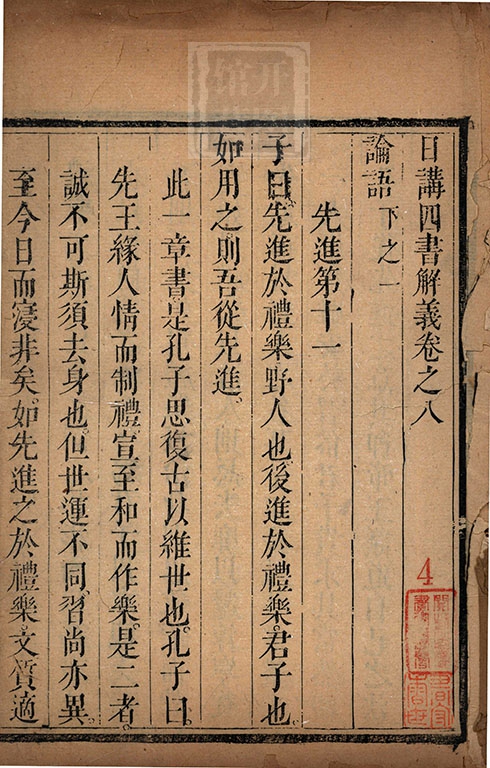 日講四書解義卷之八
論語下之一
先進第十一
子曰先進於禮樂野人也後進於禮樂君子也
如用之則吾從先進
此一章書是孔子思復古以維世也孔子曰
先王緣人情而制禮宣至和而作樂是二者
誠不可斯須去身也但世運不同習尚亦異
至今日而寖非矣如先進之於禮樂文質適
4